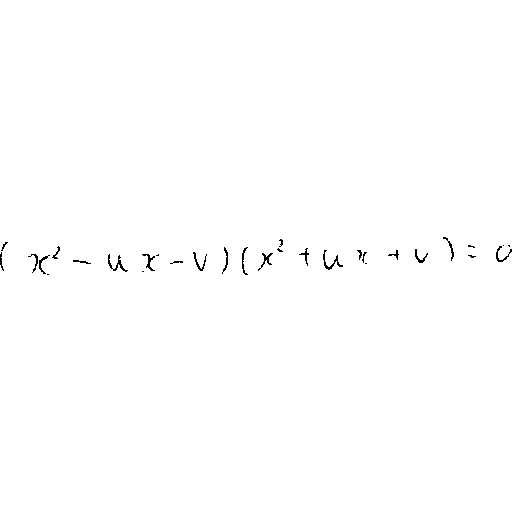 (x² - ux - v)(x² + ux + v) = 0